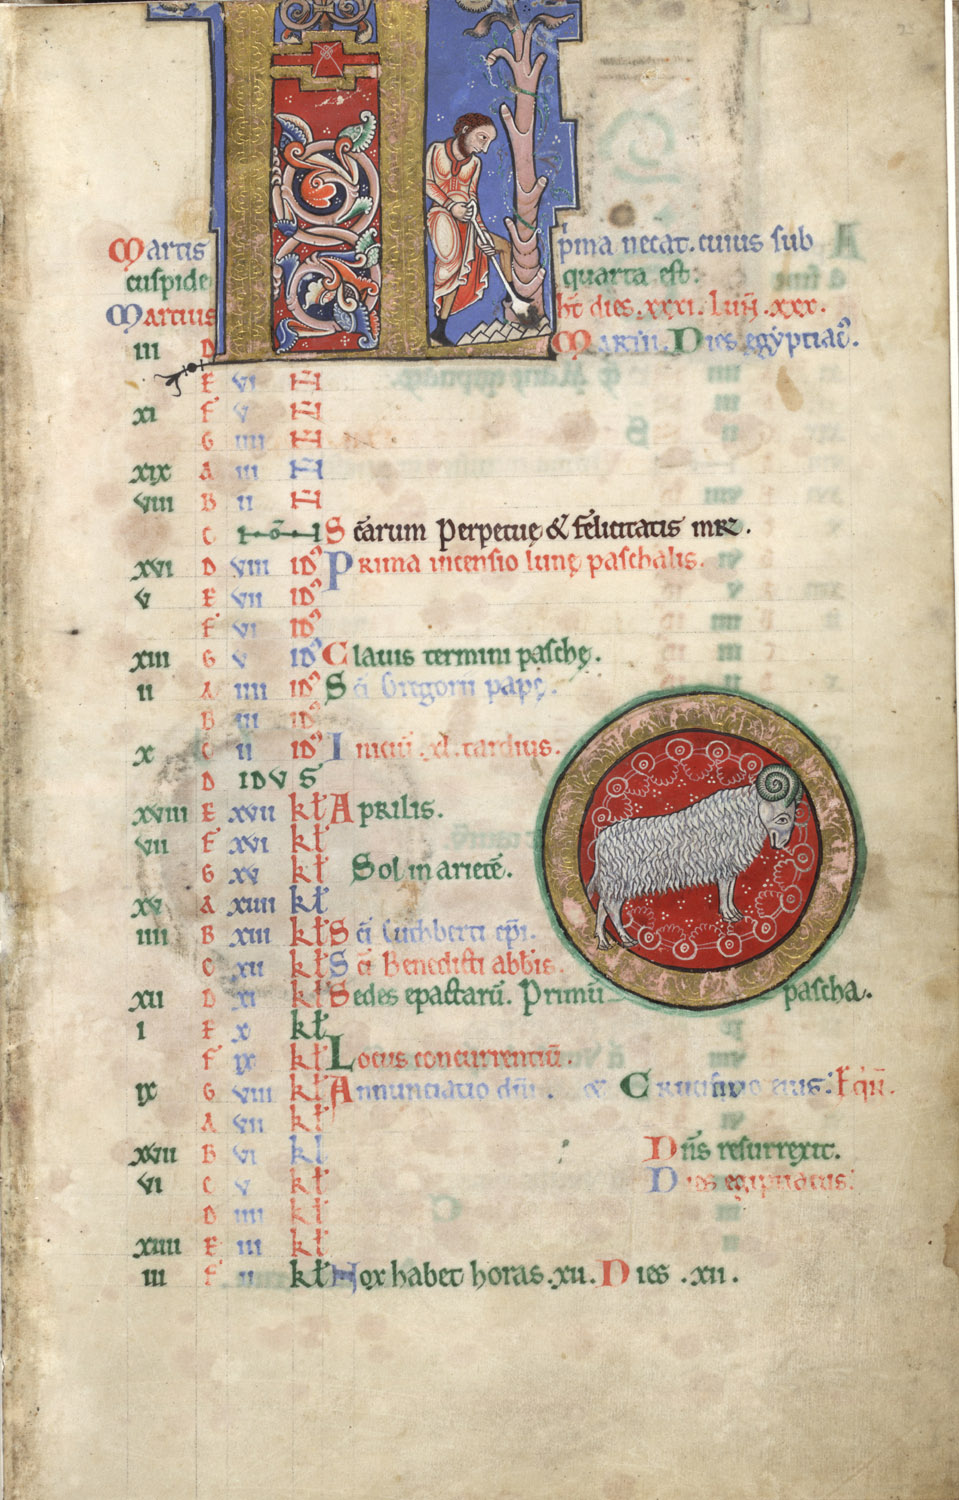 Martis KL prima necat. cuius sub
cuspide quarta est:
Martius hƀt dies. xxxi. luñ. xxx.
iii D Martii. Dies egyptiac⁹.
E vi N
xi F v N
G iiii N
xix A iii N
viii B ii N
C Non Scārum Perpetuę & felicitatis mr̄.
xvi D viii id⁹ Prima incensio lunę paschalis.
v E vii id⁹
F vi id⁹
xiii G v id⁹ Clavis termini paschę.
ii A iiii id⁹ Sc̄i Gregorii papę.
B iii id⁹
x C ii id⁹ Iniciū. xl. tardius.
D IDVS
xviii E xvii kł Aprilis.
vii F xvi kł
G xv kł Sol in arietē.
xv A xiiii kł
iiii B xiii kł Sc̄i Cuthberti ep̄i.
C xii kł Sc̄i Benedicti abb̄is.
xii D xi kł Sedes epactarū. Primū pascha.
i E x kł
F ix kł Locus concurrentiū.
ix G viii kł Annunciatio dn̄i. & Crucifixio eius: Eq̄n̄.
A vii kł
xvii B vi kl Dn̄s resurrexit.
vi C v kł Dies egiptiacus.
D iiii kł
xiiii E iii kł
iii F ii kł Nox habet horas. xii. Dies. xii.